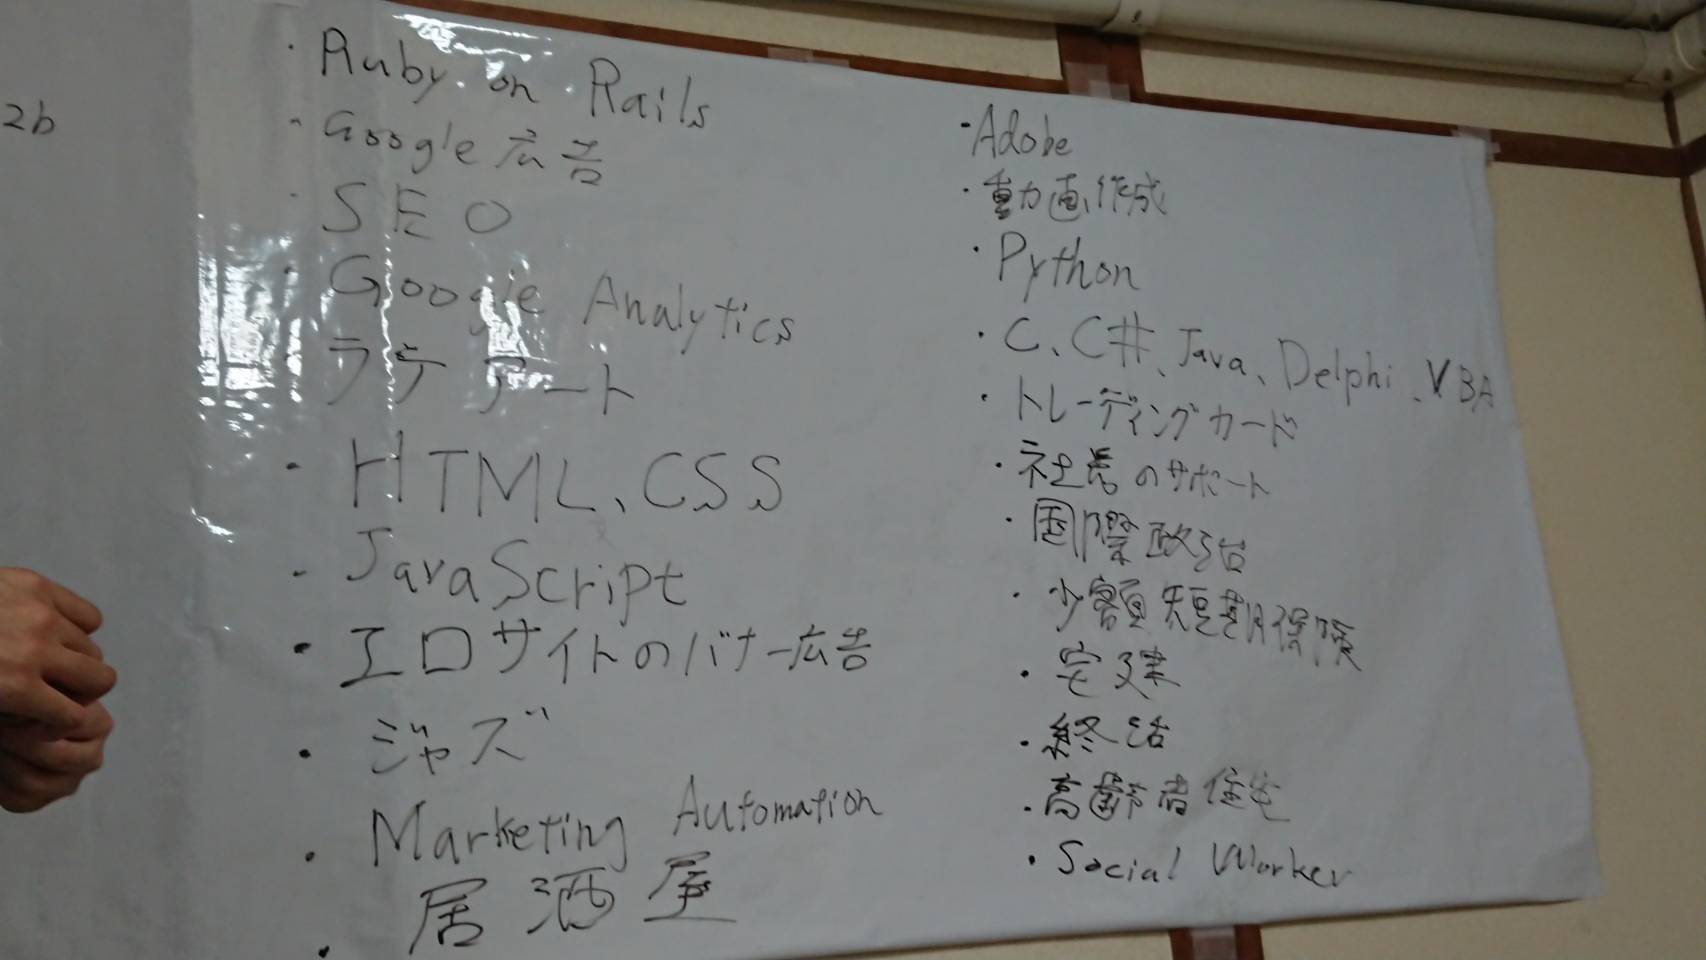 2b
・Ruby on Rails
・Google 広告
・SEO
・Google Analytics
ラテアート
・HTML、CSS
・JavaScript
・エロサイトのバナー広告
・ジャズ
・Marketing Automation
・居酒屋
・Adobe
・動画作成
・Python
・C、C#、Java、Delphi、VBA
・トレーディングカード
・社長のサポート
・国際政治
・少額短期保険
・宅建
・終活
・高齢者住宅
・Social Worker